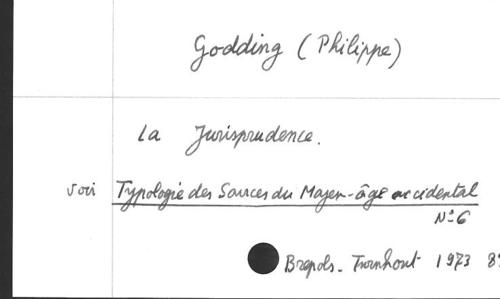 Godding (Philippe)
La Jurisprudence.
voir Typologie des Sources du Moyen-âge occidental
N° 6
Brepols - Turnhout 1973 8°